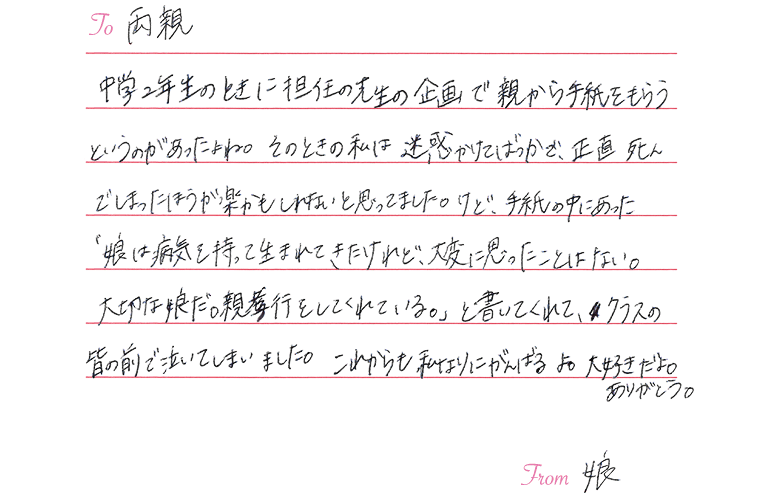 To 両親
中学2年生のときに担任の先生の企画で親から手紙をもらう
というのがあったよね。そのときの私は迷惑かけてばっかで、正直死ん
でしまったほうが楽かもしれないと思ってました。けど、手紙の中にあった
「娘は病気を持って生まれてきたけれど、大変に思ったことはない。
大切な娘だ。親孝行をしてくれている。」と書いてくれて、クラスの
皆の前で泣いてしまいました。これからも私なりにがんばるよ。大好きだよ。
ありがとう。
From 娘